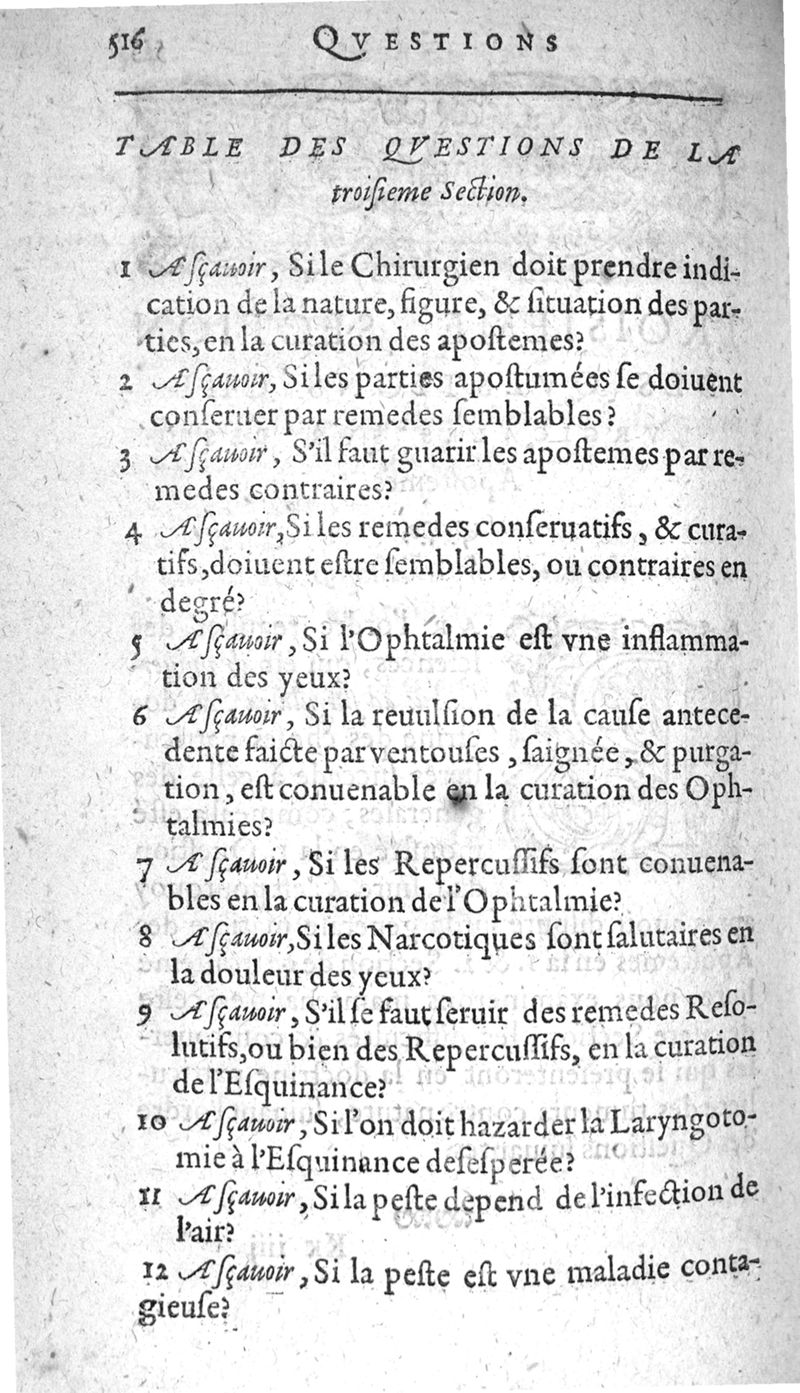 516 QVESTIONS
TABLE DES QVESTIONS DE LA
troiſieme Section.
1 Aſçauoir, Si le Chirurgien doit prendre indi-
cation de la nature, figure, & ſituation des par-
ties, en la curation des apoſtemes?
2 Aſçauoir, Si les parties apoſtumées ſe doiuent
conſeruer par remedes ſemblables?
3 Aſçauoir, S'il faut guarir les apoſtemes par re-
medes contraires?
4 Aſçauoir, Si les remedes conſeruatifs, & cura-
tifs, doiuent eſtre ſemblables, ou contraires en
degré?
5 Aſçauoir, Si l'Ophtalmie eſt vne inflamma-
tion des yeux?
6 Aſçauoir, Si la reuulſion de la cauſe antece-
dente faicte par ventouſes, ſaignée, & purga-
tion, eſt conuenable en la curation des Oph-
talmies?
7 Aſçauoir, Si les Repercuſſifs ſont conuena-
bles en la curation de l'Ophtalmie?
8 Aſçauoir, Si les Narcotiques ſont ſalutaires en
la douleur des yeux?
9 Aſçauoir, S'il ſe faut ſeruir des remedes Reſo-
lutifs, ou bien des Repercuſſifs, en la curation
de l'Eſquinance?
10 Aſçauoir, Si l'on doit hazarder la Laryngoto-
mie à l'Eſquinance deſeſperée?
11 Aſçauoir, Si la peſte depend de l'infection de
l'air?
12 Aſçauoir, Si la peſte eſt vne maladie conta-
gieuſe?